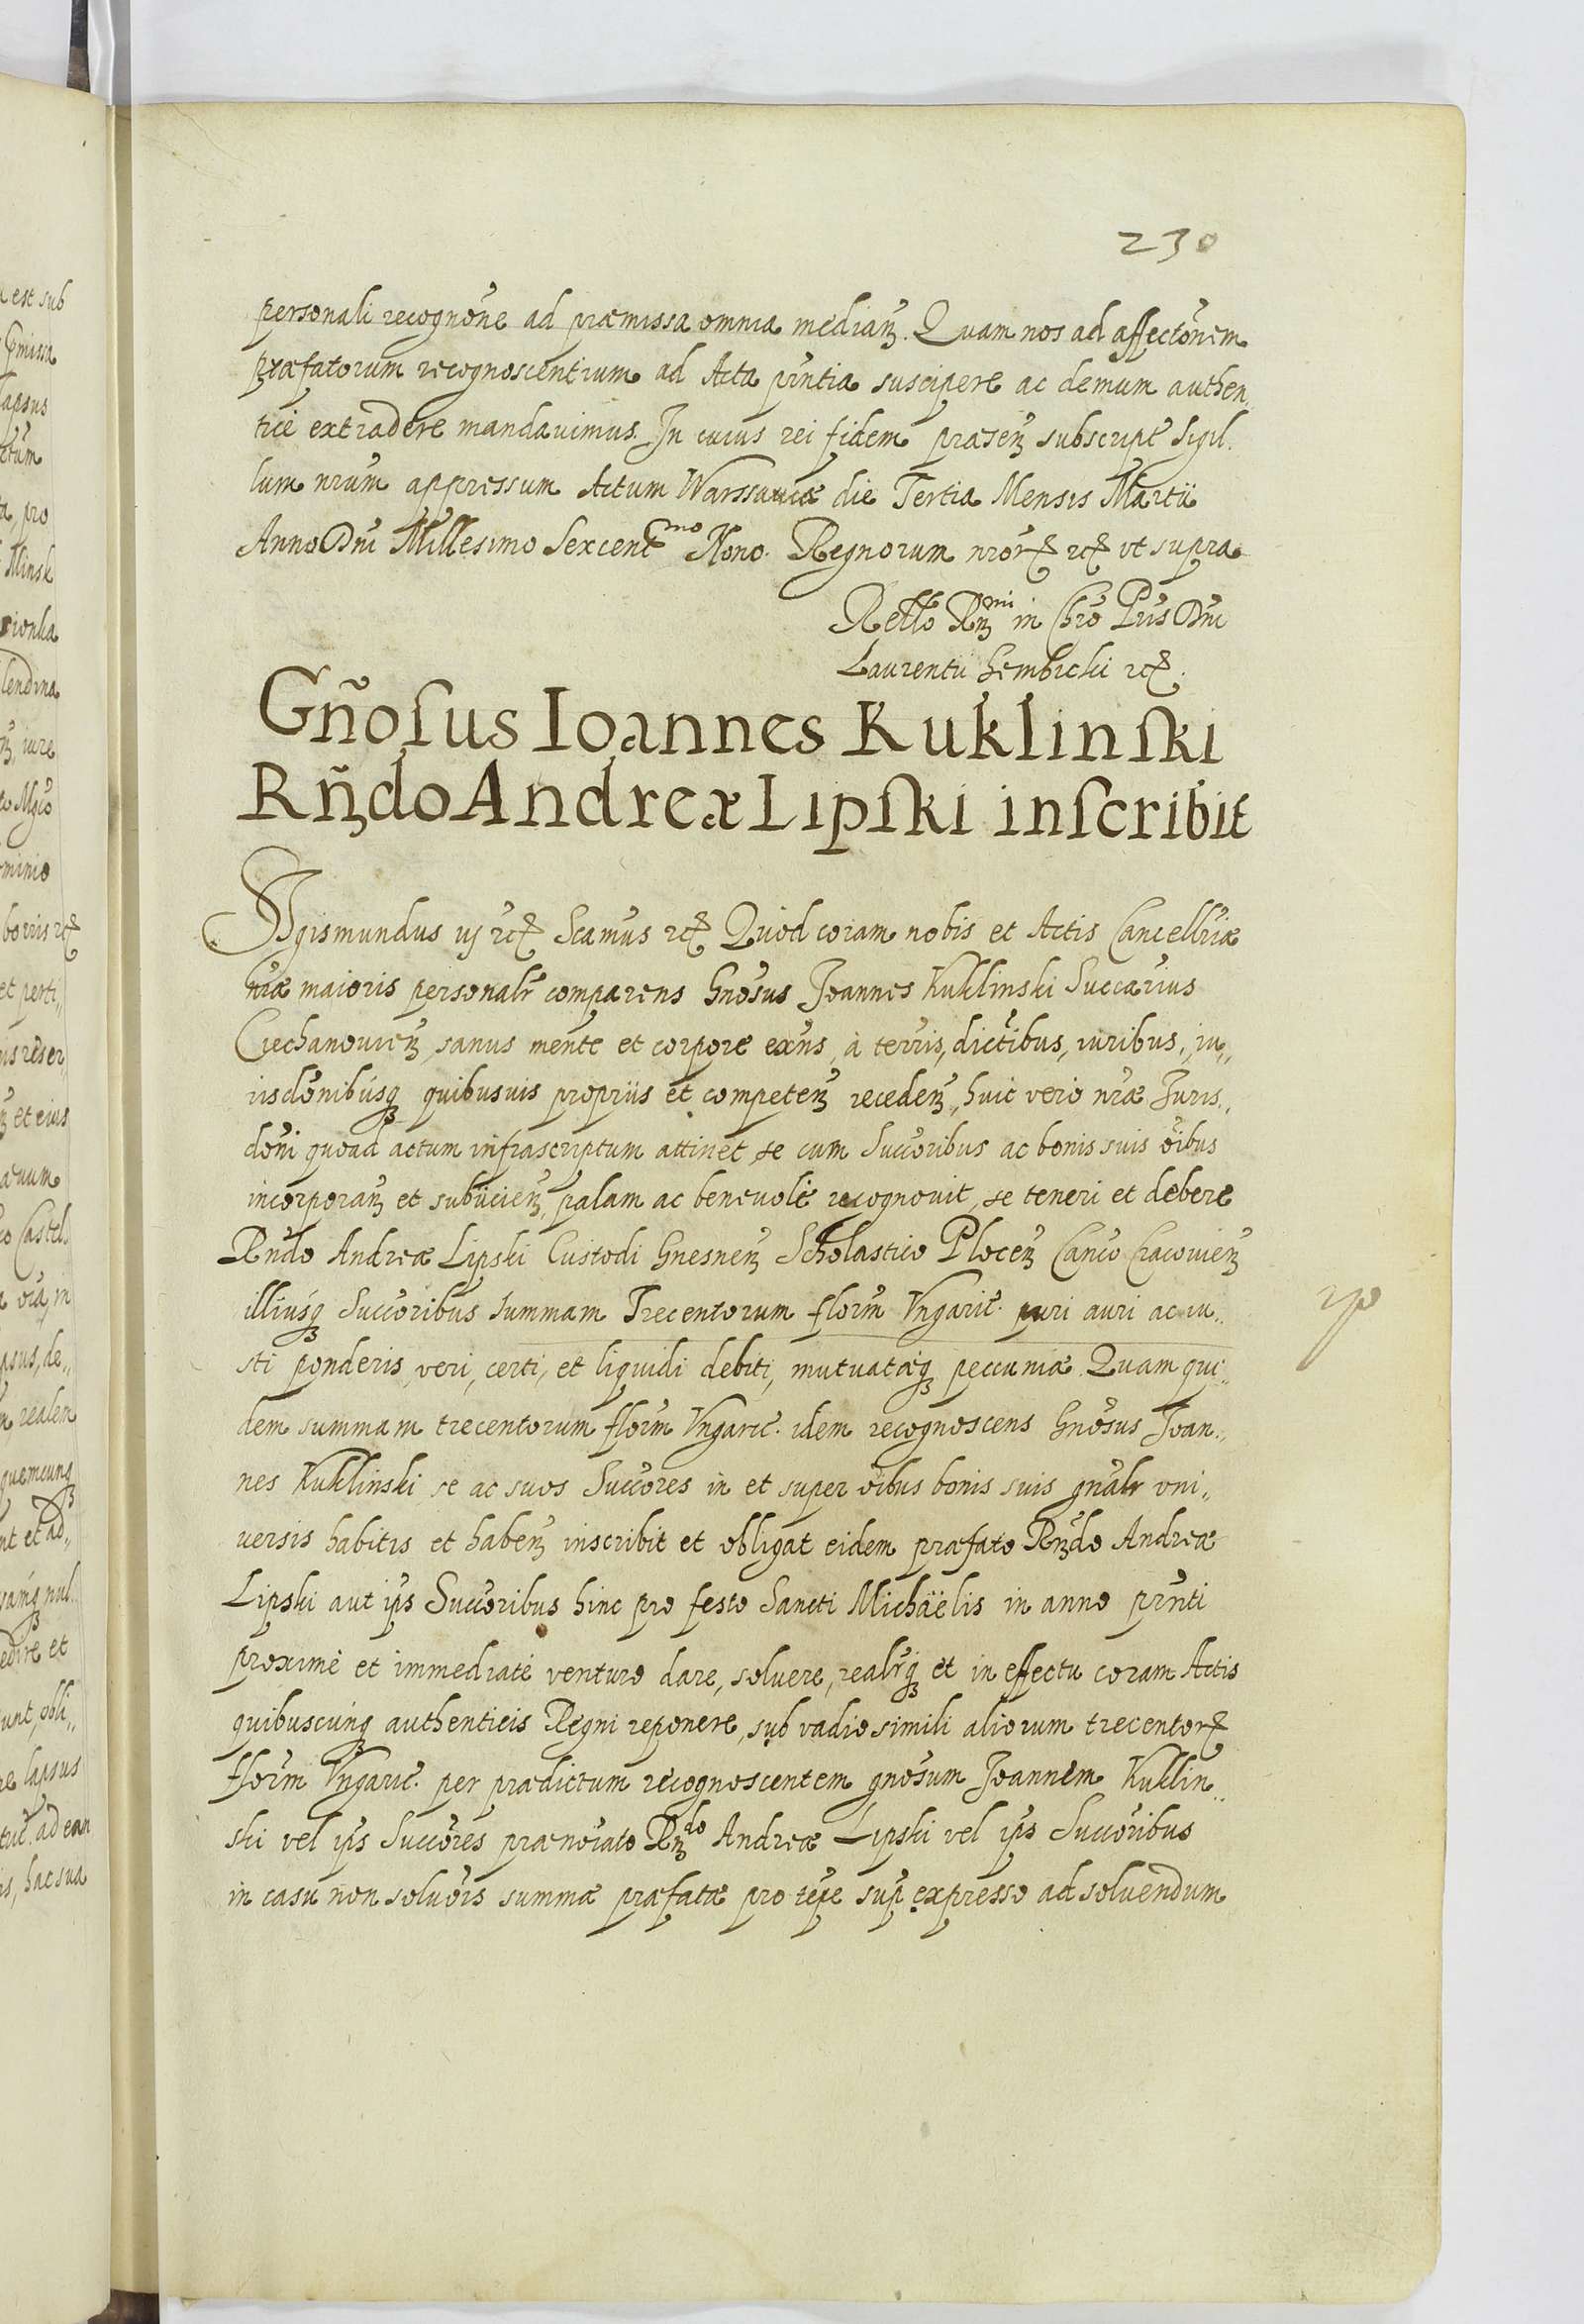 230
personali recognõne ad præmissa omnia medianȝ. Quam nos ad affectõnem
præfatorum recognoscentium ad Acta prñtia suscipere ac demum authen,
ticè extradere mandavimus. In cuius rei fidem præsenȝ subscript Sigil,
lum nrũm appressum Actum Warssaviæ die Tertia Mensis Martii
Anno Dñi Millesimo Sexcent^mo Nono. Regnorum nrõrꝝ ꝛcꝭ vt supra
Rello Rȝ^mi in Chrõ Pris Dñi
Laurentii Gembicki ꝛcꝭ.
Gñosus Ioannes Kuklinski
Rñȝdo Andreæ Lipski inscribit
Sigismundus iij ꝛcꝭ Scamũs ꝛcꝭ Quod coram nobis et Actis Cancellriæ
nrãe maioris personalr̃ comparens Gnõsus Joannes Kuklinski Succarius
Ciechanovienȝ, sanus mente et corpore exñs, à terris, dictĩbus, iuribus, iu,,
risdõnibusqȝ quibusvis propriis et competenȝ recedenȝ, huic vero nrãe Juris,,
dõni quoad actum infrascriptum attinet se cum Succoribus ac bonis suis õibus
incorporanȝ et subiicienȝ, palam ac benevolè recognovit, se teneri et debere
Rnd̃o Andreæ Lipski Custodi Gnesnenȝ Scholastico Plocenȝ Canco Cracovienȝ
illiusqȝ Succoribus Summam Trecentorum florm̃ Vngaric. puri auri ac iu,,
sti ponderis, veri, certi, et liquidi debiti, mutuatæqȝ peccuniæ. Quam qui,,
dem summam trecentorum florm̃ Vngaric. idem recognoscens Gnõsus Joan,,
nes Kuklinski se ac suos Succores in et super õibus bonis suis gnãlr vni,,
versis habitis et habenȝ inscribit et obligat eidem præfato Rȝdo Andreæ
Lipski aut ips Succoribus hinc pro festo Sancti Michäelis in anno prñti
proximè et immediatè venturo dare, solvere, realr̃qȝ et in effectu coram Actis
quibuscunqȝ authenticis Regni reponere, sub vadio simili aliorum trecentorꝝ
florm̃ Vngaric. per prædictum recognoscentem gnõsum Joannem Kuklin,,
ski vel ips Succores prænoĩato Rȝ^do Andreæ Lipski vel ips Succoribus
in casu non solũois summæ præfatæ pro tẽpe sup expresso ad solvendum